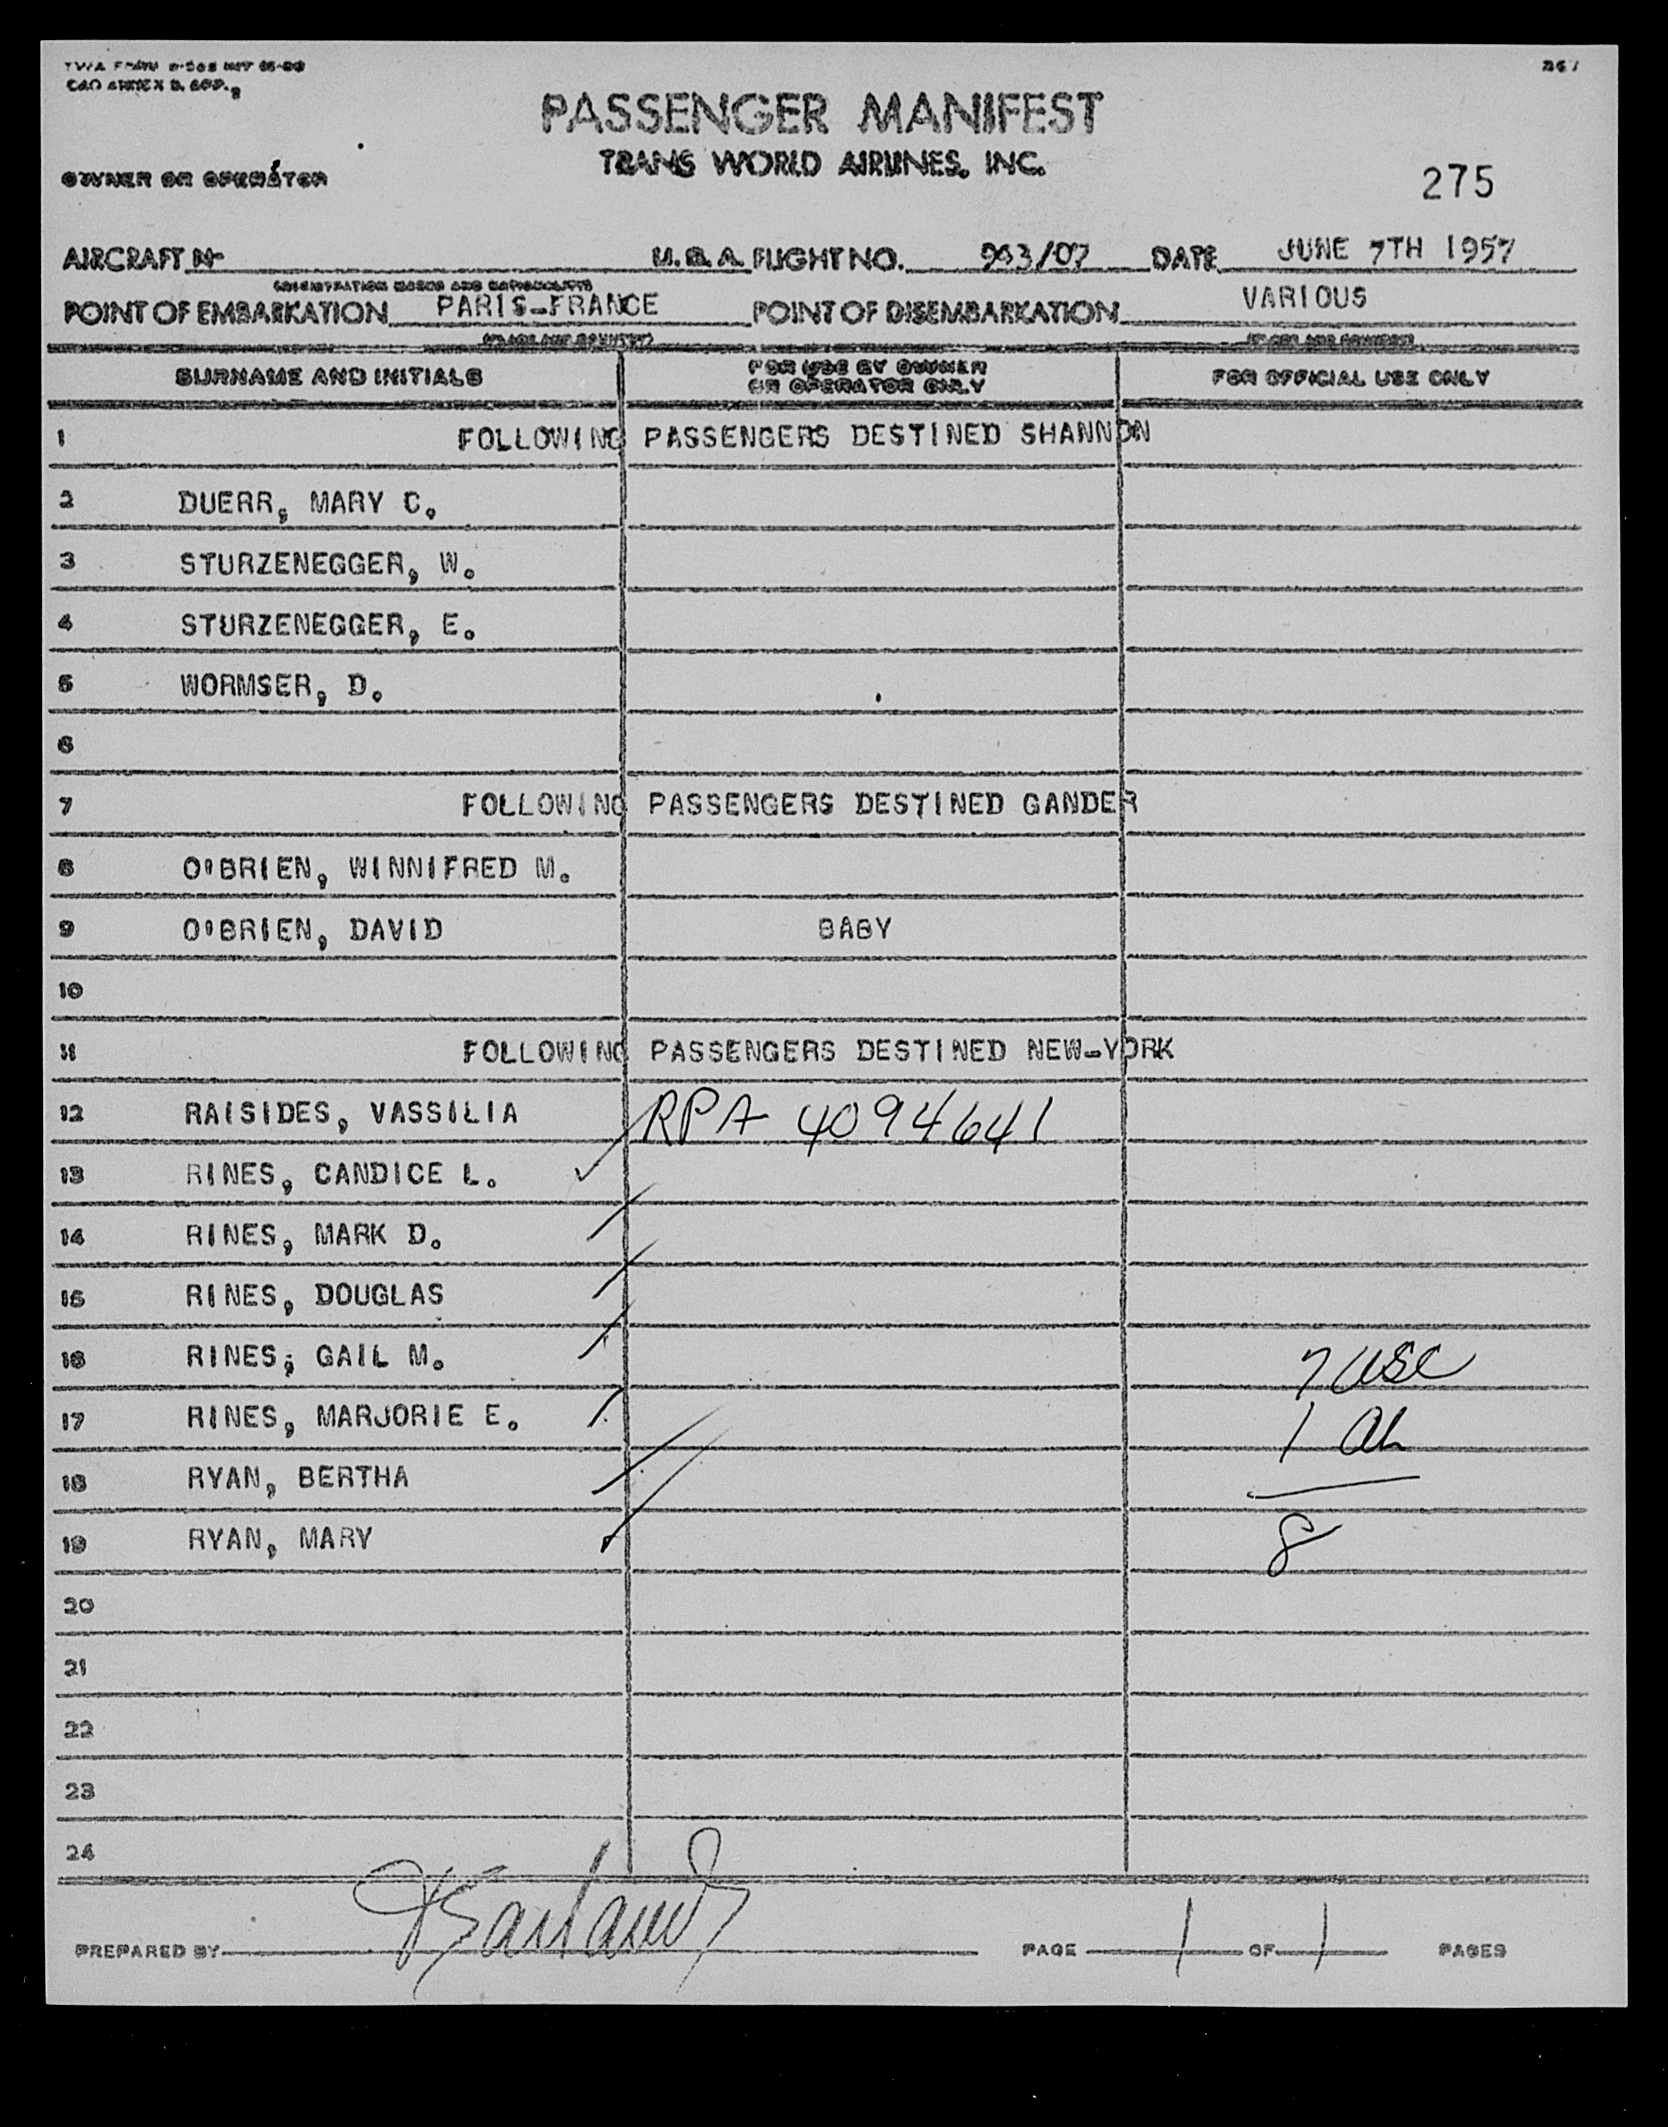 PASSENGER MANIFEST
TRANS WORLD AIRLINES, INC.
OWNER OR OPERATOR
275
AIRCRAFT Nº U.S.A. FLIGHT NO. 963/07 DATE JUNE 7TH 1957
(REGISTRATION MARKS AND NATIONALITY)
POINT OF EMBARKATION PARIS-FRANCE POINT OF DISEMBARKATION VARIOUS
(PLACE AND COUNTRY) (PLACE AND COUNTRY)
SURNAME AND INITIALS FOR USE BY OWNER OR OPERATOR ONLY FOR OFFICIAL USE ONLY
1 FOLLOWING PASSENGERS DESTINED SHANNON
2 DUERR, MARY C.
3 STURZENEGGER, W.
4 STURZENEGGER, E.
5 WORMSER, D.
6
7 FOLLOWING PASSENGERS DESTINED GANDER
8 O'BRIEN, WINNIFRED M.
9 O'BRIEN, DAVID BABY
10
11 FOLLOWING PASSENGERS DESTINED NEW-YORK
12 RAISIDES, VASSILIA RPA 4094641
13 RINES, CANDICE L.
14 RINES, MARK D.
15 RINES, DOUGLAS
16 RINES, GAIL M. 7 USC
17 RINES, MARJORIE E. 1 al
18 RYAN, BERTHA
19 RYAN, MARY 8
20
21
22
23
24
PREPARED BY PAGE 1 OF 1 PAGES